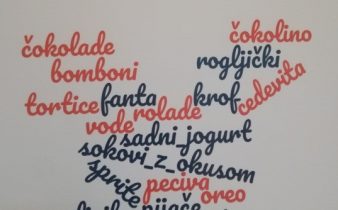 čokolade
čokolino
bomboni
rogljički
tortice fanta
rolade
krof
cedevita
vode
sadni_jogurt
sokovi_z_okusom
sprite
peciva
oreo
pijače